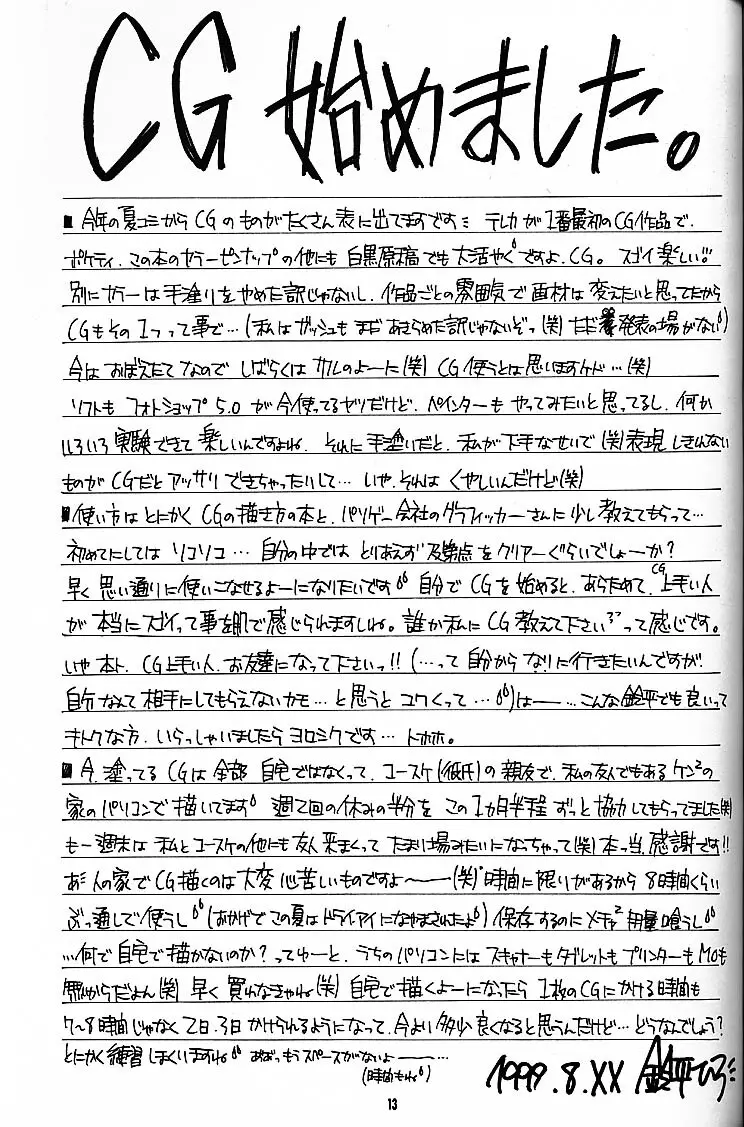 CG 始めました。
■今年の夏コミからCGのものがたくさん表に出てますですミ テレカが1番最初のCG作品で、
ポケティ、この本のカラーピンナップの他にも白黒原稿でも大活やくですよ、CG。スゴイ楽しい!!
別にカラーは手塗りをやめた訳じゃないし、作品ごとの雰囲気で画材は変えたいと思ってたから
CGもその1つって事で…(私はガッシュもまだあきらめた訳じゃないぞっ(笑) ただ発表の場がない)
今はおぼえたてなのでしばらくはサルのよーに(笑)CG使うとは思いますケド…(笑)
ソフトもフォトショップ5.0が今使ってるヤツだけど、ペインターもやってみたいと思ってるし、何か
いろいろ実験できて楽しいんですよね、それに手塗りだと、私が下手なせいで(笑)表現しきれない
ものがCGだとアッサリできちゃったりして…いや、それはくやしいんだけど(笑)
■使い方はとにかくCGの描き方の本と、パソゲー会社のグラフィッカーさんに少し教えてもらって…
初めてにしてはソコソコ…自分の中ではとりあえず及第点をクリアーぐらいでしょーか?
早く思い通りに使いこなせるよーになりたいです 自分でCGを始めると、あらためて、CG上手い人
が本当にスゴイって事を肌で感じられますしね。誰か私にCG教えて下さいって感じです。
いや本ト、CG上手い人、お友達になって下さいっ!!(…って自分からなりに行きたいんですが、
自分なんて相手にしてもらえないカモ…と思うとコワくって…)は——…こんな鈴平でも良いって
キトクな方、いらっしゃいましたらヨロシクです…トホホ。
■今、塗ってるCGは全部自宅ではなくって、コースケ(彼氏)の親友で、私の友人でもあるケンの
家のパソコンで描いてます 週2回の休みの半分をこの1カ月半程ずっと協力してもらってました(笑)
もー週末は私とコースケの他にも友人来まくってたまり場みたいになっちゃって(笑)本っ当、感謝です!!
人の家でCG描くのは大変心苦しいものですよ〜——(笑)時間に限りがあるから8時間くらい
ぶっ通しで使うし(おかげでこの夏はドライアイになやまされたよ)保存するのにメチャ2容量喰うし
…何で自宅で描かないのか?ってゆーと、うちのパソコンにはスキャナーもタブレットもプリンターもMOも
無いからだよん(笑)早く買わなきゃね(笑)自宅で描くよーになったら1枚のCGにかける時間も
7〜8時間じゃなく2日、3日かけられるようになって、今より多少良くなると思うんだけど…どうなんでしょう?
とにかく練習しまくりますね あぁっもうスペースがないよ——…
(時間もね)
1999.8.XX 鈴平ひろ
13